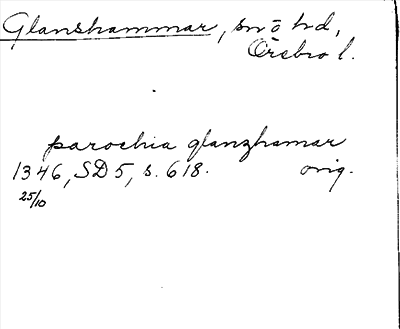 Glanshammar, sn o hd,
Örebro l.
parochia glanzhamar
1346, SD 5, s. 618. orig.
25/10